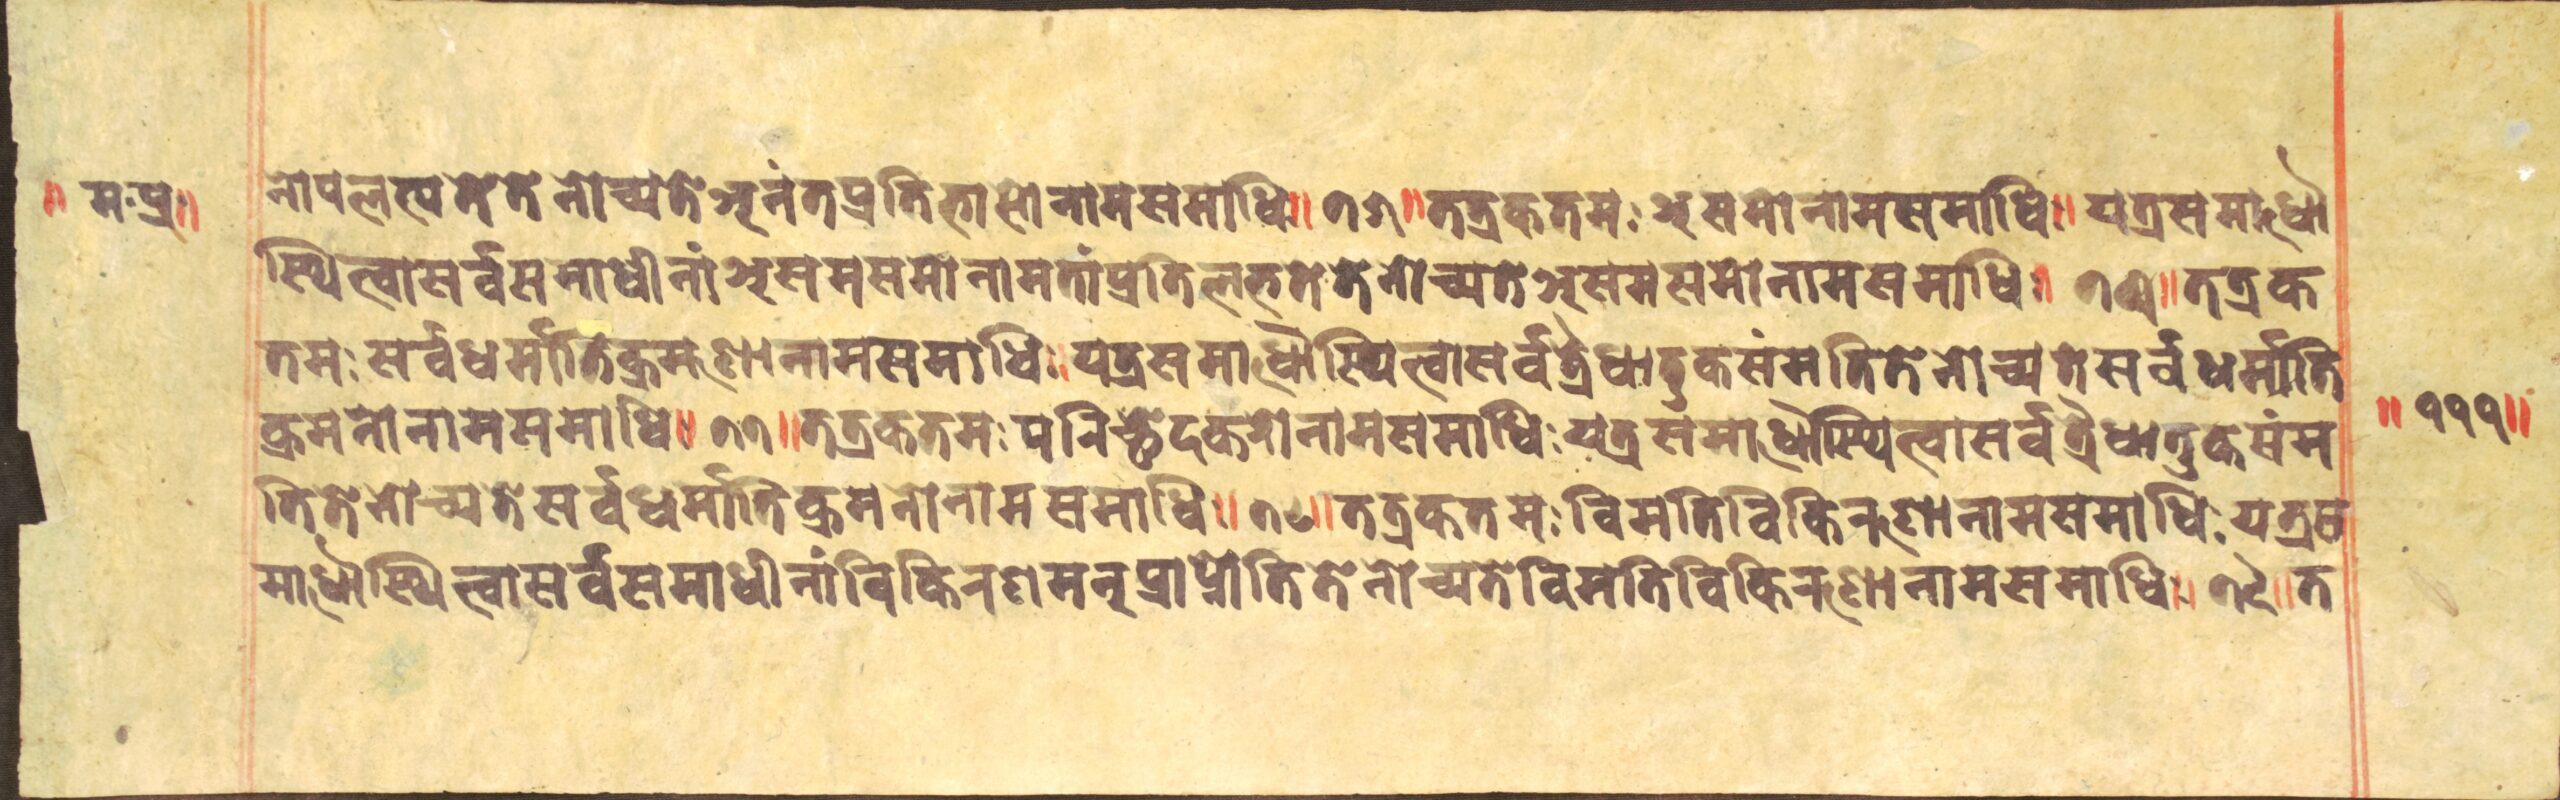 ॥ म.प्र.॥
नोपलत्प्यतेतेनोच्यतेअनंतप्रतिभासोनामसमाधिः॥ ७५॥तत्रकतमः असमोनामसमाधिः॥ यत्रसमाधौ
स्थित्वासर्वसमाधीनांअसमसमोनामतांप्रतिलभतेतेनोच्यतेअसमसमोनामसमाधिः॥ ७६॥तत्रक
तमः सर्वधर्मातिक्रमणोनामसमाधिः॥यत्रसमाधौस्थित्वासर्वत्रैधातुकसंमतितेनोच्यतेसर्वधर्माति
क्रमनोनामसमाधिः॥ ७७॥तत्रकतमः परिच्छेदकरोनामसमाधिः यत्रसमाधौस्थित्वासर्वत्रैधातुकसंम
तितेनोच्यतेसर्वधर्मातिक्रमनोनामसमाधिः॥ ७८॥तत्रकतमः विमतिविकिरणोनामसमाधिः यत्रस
माधौस्थित्वासर्वसमाधीनांविकिरणमनुप्राप्नोतितेनोच्यतेविमतिविकिरणोनामसमाधिः॥ ७९॥त
॥ १११॥